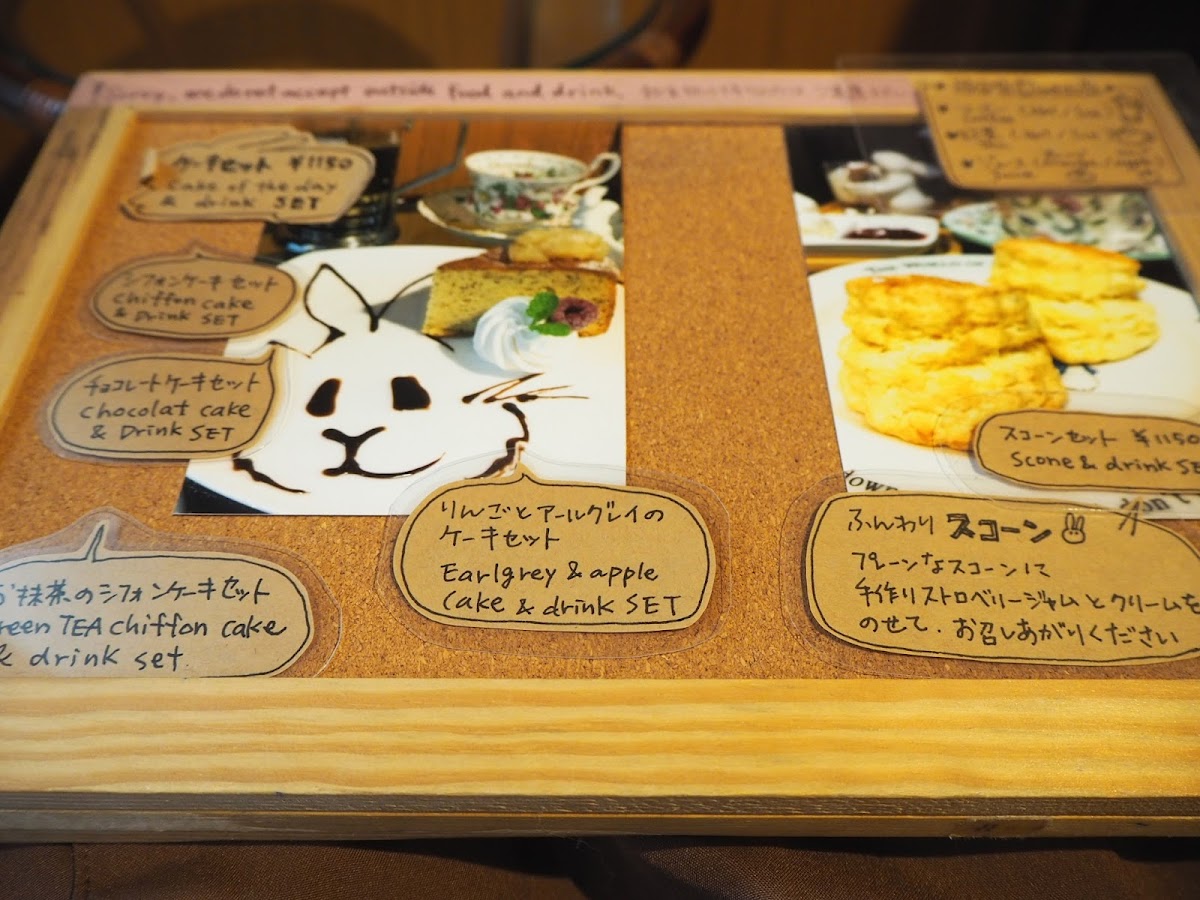 Sorry, we do not accept outside food and drink,
ケーキセット ¥1150
Cake of the day
& drink SET
シフォンケーキセット
chiffon cake
& Drink SET
チョコレートケーキセット
chocolat cake
& Drink SET
抹茶のシフォンケーキセット
reen TEA chiffon cake
& drink set
りんごとアールグレイの
ケーキセット
Earlgrey & apple
cake & drink SET
スコーンセット ¥1150
Scone & drink SE
ふんわり スコーン
プレーンなスコーンに
手作りストロベリージャムとクリームを
のせて、お召しあがりください